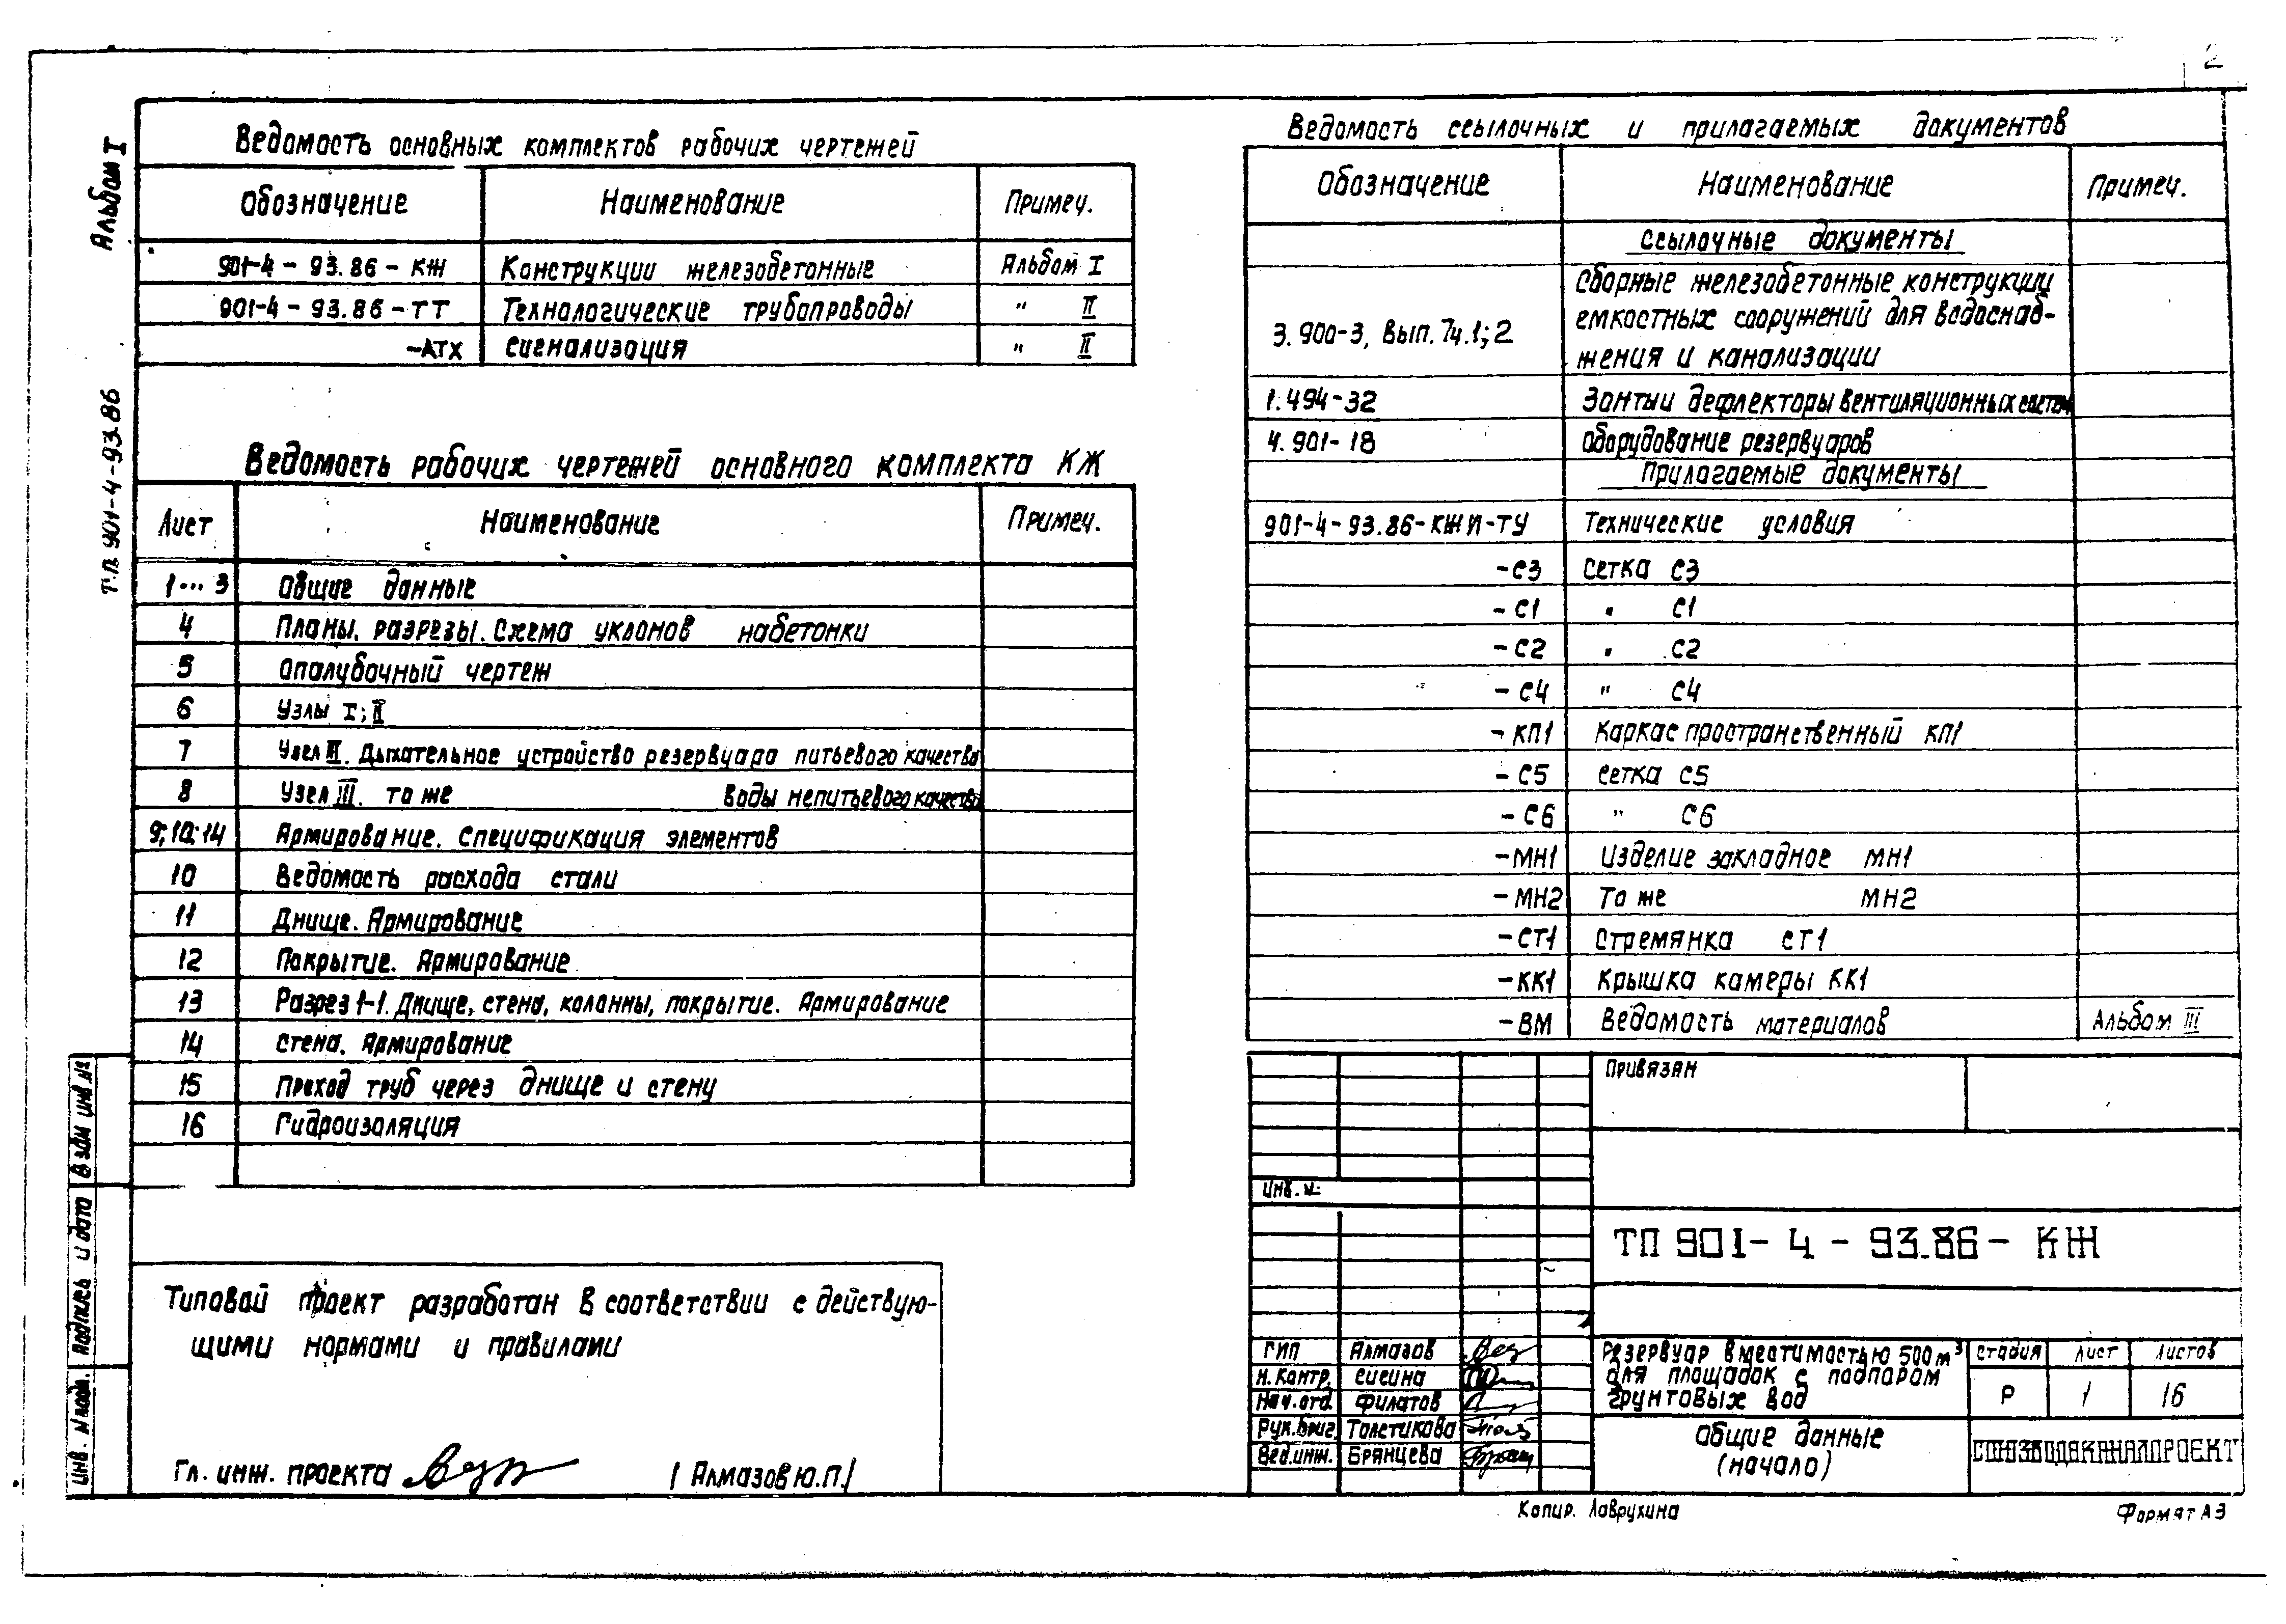 2
Альбом I
Т.П. 901-4-93.86
Ведомость основных комплектов рабочих чертежей
Обозначение Наименование Примеч.
901-4-93.86-КЖ Конструкции железобетонные Альбом I
901-4-93.86-ТТ Технологические трубопроводы " II
-АТХ Сигнализация " II
Ведомость рабочих чертежей основного комплекта КЖ
Лист Наименование Примеч.
1...3 Общие данные
4 Планы, разрезы. Схема уклонов набетонки
5 Опалубочный чертеж
6 Узлы I; II
7 Узел III. Дыхательное устройство резервуара питьевого качества
8 Узел III. то же воды непитьевого качества
9; 10; 14 Армирование. Спецификация элементов
10 Ведомость расхода стали
11 Днище. Армирование
12 Покрытие. Армирование
13 Разрез 1-1. Днище, стена, колонны, покрытие. Армирование
14 Стена. Армирование
15 Проход труб через днище и стену
16 Гидроизоляция
Типовой проект разработан в соответствии с действую-
щими нормами и правилами
Гл. инж. проекта / Алмазов Ю.П./
Взам инв №
Подпись и дата
Инв. № подл.
Ведомость ссылочных и прилагаемых документов
Обозначение Наименование Примеч.
Ссылочные документы
3.900-3, Вып. 7ч.1; 2 Сборные железобетонные конструкции
емкостных сооружений для водоснаб-
жения и канализации
1.494-32 Зонты и дефлекторы вентиляционных систем
4.901-18 Оборудование резервуаров
Прилагаемые документы
901-4-93.86-КЖИ-ТУ Технические условия
-С3 Сетка С3
-С1 " С1
-С2 " С2
-С4 " С4
-КП1 Каркас пространственный КП1
-С5 Сетка С5
-С6 " С6
-МН1 Изделие закладное МН1
-МН2 То же МН2
-СТ1 Стремянка СТ1
-КК1 Крышка камеры КК1
-ВМ Ведомость материалов Альбом III
Привязан
Инв. №
ТП 901-4-93.86-КЖ
ГИП Алмазов
Н. контр. Сисина
Нач. отд. Филатов
Рук. бриг. Толстикова
Вед. инж. Брянцева
Резервуар вместимостью 500 м³
для площадок с подпором
грунтовых вод
Стадия Лист Листов
Р 1 16
Общие данные
(начало)
СОЮЗВОДОКАНАЛПРОЕКТ
Копир. Лаврухина
Формат А3